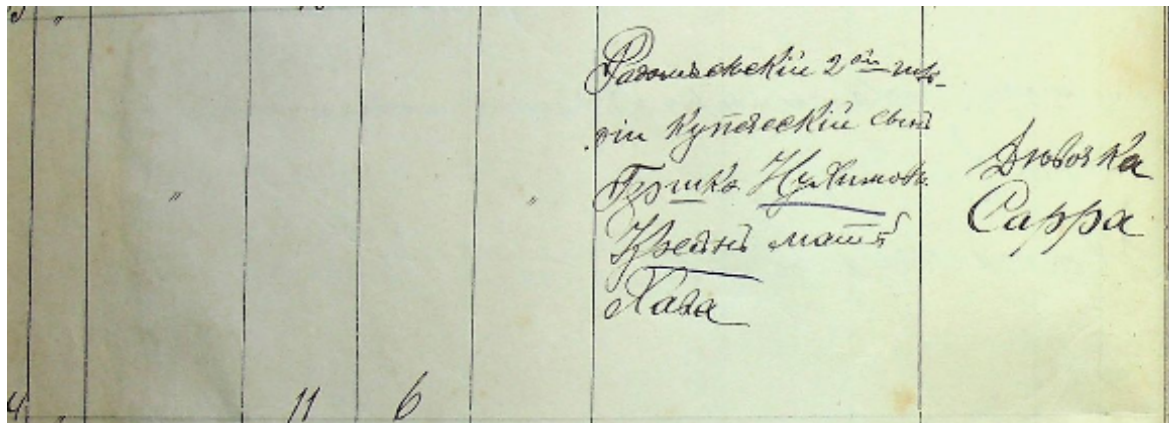 Радомысльскiй 2ой гиль-
дiи Купеческiй сынъ
Гершко Нухимовъ
Крейнъ мать
Хава
Дѣвочка
Сарра
"
"
4 " 11 6